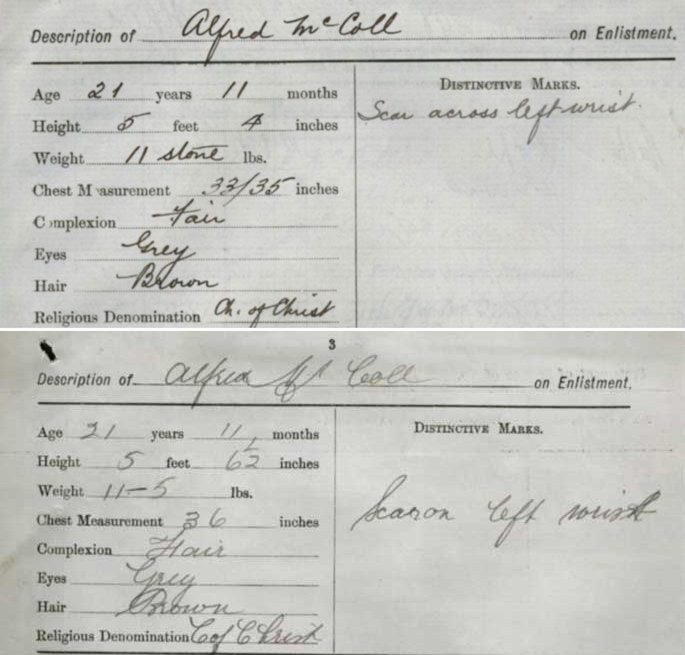 Description of Alfred McColl on Enlistment.
Age 21 years 11 months
Height 5 feet 4 inches
Weight 11 stone lbs.
Chest Measurement 33/35 inches
Complexion Fair
Eyes Grey
Hair Brown
Religious Denomination Ch. of Christ
DISTINCTIVE MARKS.
Scar across left wrist.
3
Description of Alfred Mc Coll on Enlistment.
Age 21 years 11 months
Height 5 feet 6½ inches
Weight 11-5 lbs.
Chest Measurement 36 inches
Complexion Fair
Eyes Grey
Hair Brown
Religious Denomination C of Christ
DISTINCTIVE MARKS.
Scar on left wrist